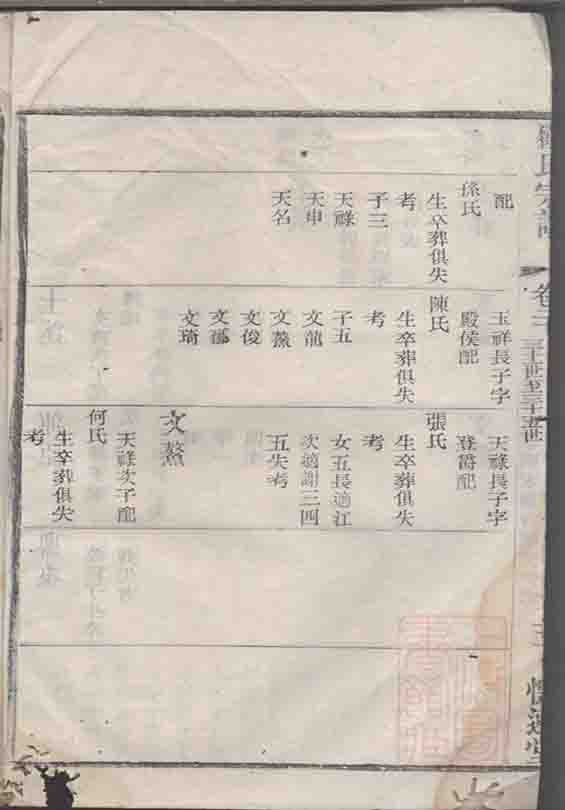 配
孫氏
生卒葬俱失
考
子三
天祿
天申
天名
玉祥長子字
殿侯配
陳氏
生卒葬俱失
考
子五
文龍
文俊
文琦
天祿長子字
登爵配
張氏
生卒葬俱失
考
女五長適江
次適謝三四
五失考
文熬
天祿次子配
何氏
生卒葬俱失
考
氏宗譜
卷
三十世至三十五世